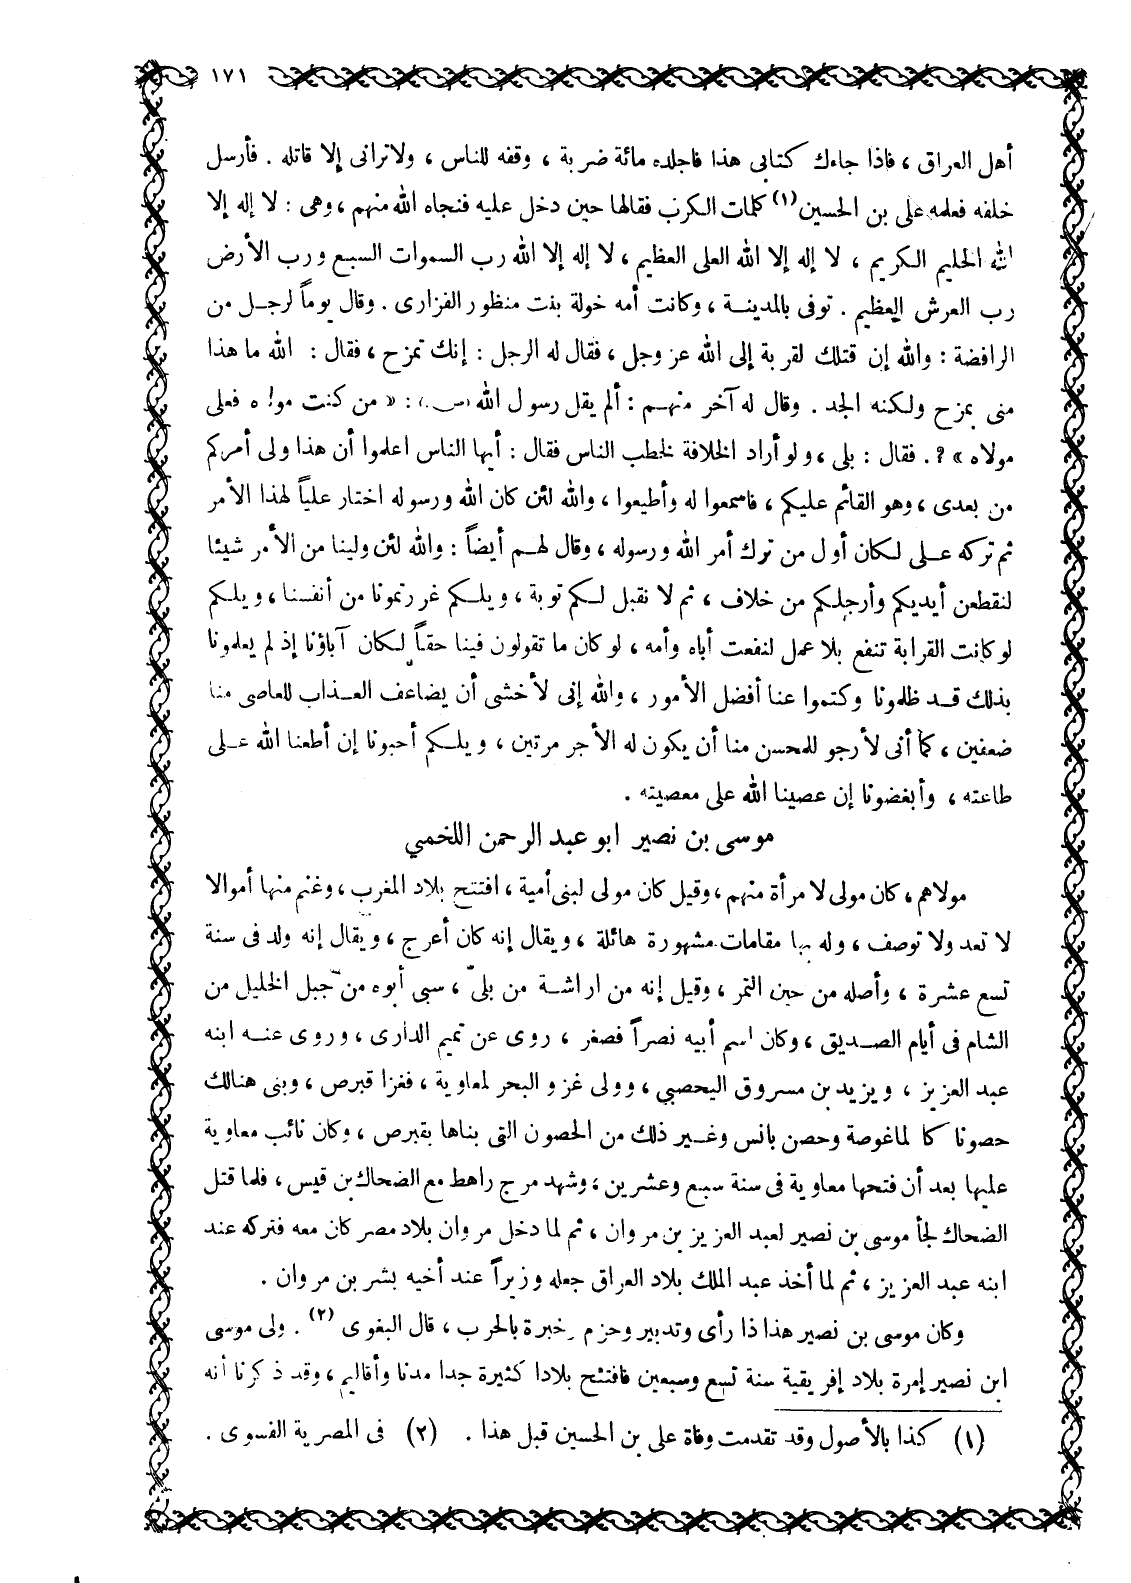 ١٧١
أهل العراق ، فاذا جاءك كتابى هذا فاجلده مائة ضربة ، وقفه للناس ، ولاترانى إلا قاتله . فأرسل
خلفه فعلمه على بن الحسين (١) كلمات الكرب فقالها حين دخل عليه فنجاه الله منهم ، وهى : لا إله إلا
الله الحليم الكريم ، لا إله إلا الله العلى العظيم ، لا إله إلا الله رب السموات السبع ورب الأرض
رب العرش العظيم . توفى بالمدينة ، وكانت أمه خولة بنت منظور الفزارى . وقال يوماً لرجل من
الرافضة : والله إن قتلك لقربة إلى الله عز وجل ، فقال له الرجل : إنك تمزح ، فقال : الله ما هذا
منى بمزح ولكنه الجد . وقال له آخر منهم : ألم يقل رسول الله (س.) : « من كنت مولاه فعلى
مولاه » ؟ . فقال : بلى ، ولو أراد الخلافة لخطب الناس فقال : أيها الناس اعلموا أن هذا ولى أمركم
من بعدى ، وهو القائم عليكم ، فاسمعوا له وأطيعوا ، والله لئن كان الله ورسوله اختار علياً لهذا الأمر
ثم تركه على لكان أول من ترك أمر الله ورسوله ، وقال لهم أيضاً : والله لئن ولينا من الأمر شيئا
لنقطعن أيديكم وأرجلكم من خلاف ، ثم لا نقبل لكم توبة ، ويلكم غررتمونا من أنفسنا ، ويلكم
لو كانت القرابة تنفع بلا عمل لنفعت أباه وأمه ، لو كان ما تقولون فينا حقاً لكان آباؤنا إذ لم يعلمونا
بذلك قد ظلمونا وكتموا عنا أفضل الأمور ، والله إنى لأخشى أن يضاعف العذاب للعاصى منا
ضعفين ، كما أنى لأرجو للمحسن منا أن يكون له الأجر مرتين ، ويلكم أحبونا إن أطعنا الله على
طاعته ، وأبغضونا إن عصينا الله على معصيته .
موسى بن نصير ابو عبد الرحمن اللخمي
مولاهم ، كان مولى لامرأة منهم ، وقيل كان مولى لبنى أمية ، افتتح بلاد المغرب ، وغنم منها أموالا
لا تعد ولا توصف ، وله بها مقامات مشهورة هائلة ، ويقال إنه كان أعرج ، ويقال إنه ولد فى سنة
تسع عشرة ، وأصله من حين التمر ، وقيل إنه من اراشة من بلىّ ، سبى أبوه من جبل الخليل من
الشام فى أيام الصديق ، وكان اسم أبيه نصراً فصغر ، روى عن تميم الدارى ، وروى عنه ابنه
عبد العزيز ، ويزيد بن مسروق اليحصبي ، وولى غزو البحر لمعاوية ، فغزا قبرص ، وبنى هنالك
حصونا كالماغوصة وحصن بانس وغير ذلك من الحصون التى بناها بقبرص ، وكان نائب معاوية
عليها بعد أن فتحها معاوية فى سنة سبع وعشرين ، وشهد مرج راهط مع الضحاك بن قيس ، فلما قتل
الضحاك لجأ موسى بن نصير لعبد العزيز بن مروان ، ثم لما دخل مروان بلاد مصر كان معه فتركه عند
ابنه عبد العزيز ، ثم لما أخذ عبد الملك بلاد العراق جعله وزيراً عند أخيه بشر بن مروان .
وكان موسى بن نصير هذا ذا رأى وتدبير وحزم وخبرة بالحرب ، قال البغوى (٢) . ولى موسى
ابن نصير إمرة بلاد إفريقية سنة تسع وسبعين فافتتح بلادا كثيرة جدا مدنا وأقاليم ، وقد ذكرنا أنه
(١) كذا بالأصول وقد تقدمت وفاة على بن الحسين قبل هذا . (٢) فى المصرية الفسوى .